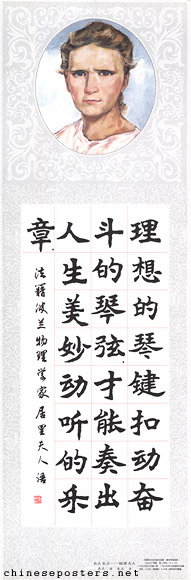 理想的琴键扣动奋
斗的琴弦，才能奏出
人生美妙动听的乐
章。
法籍波兰物理学家居里夫人语
chineseposters.net